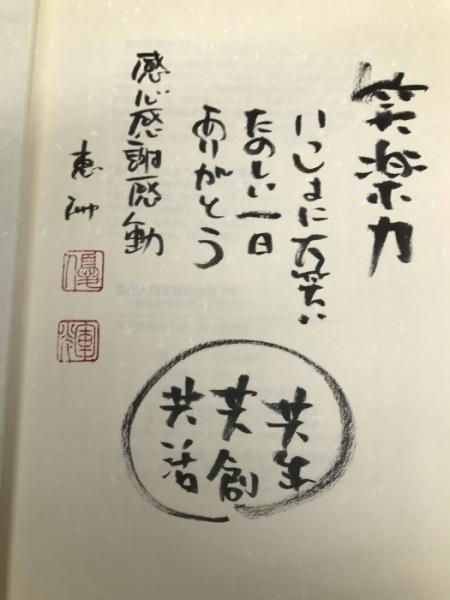 笑楽力
いっしょに大笑い
たのしい一日
ありがとう
感心感謝感動
恵
優
輝
共生
共創
共活